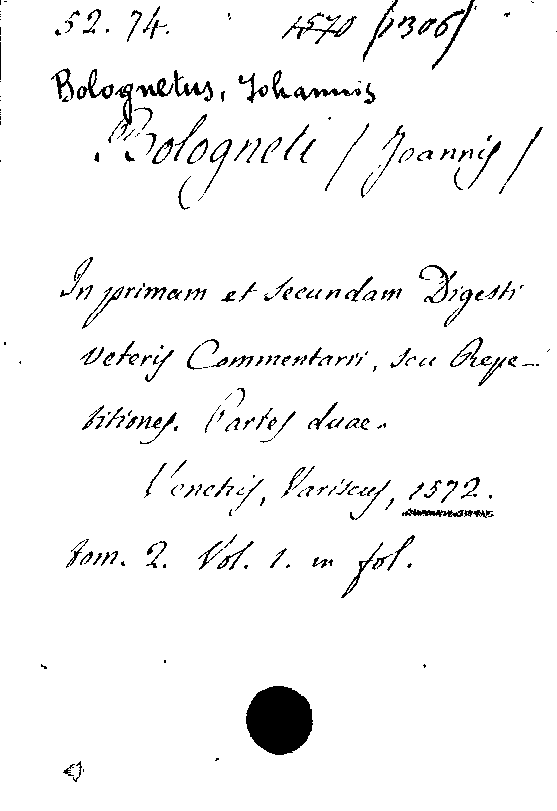 52. 74. 1570 (1306)
Bolognetus, Johannis
Bologneti (Joannis)
In primam et secundam Digesti
veteris Commentarii, seu Repe-
titiones. Partes duae.
Venetiis, Variscus, 1572.
tom. 2. Vol. 1. in fol.